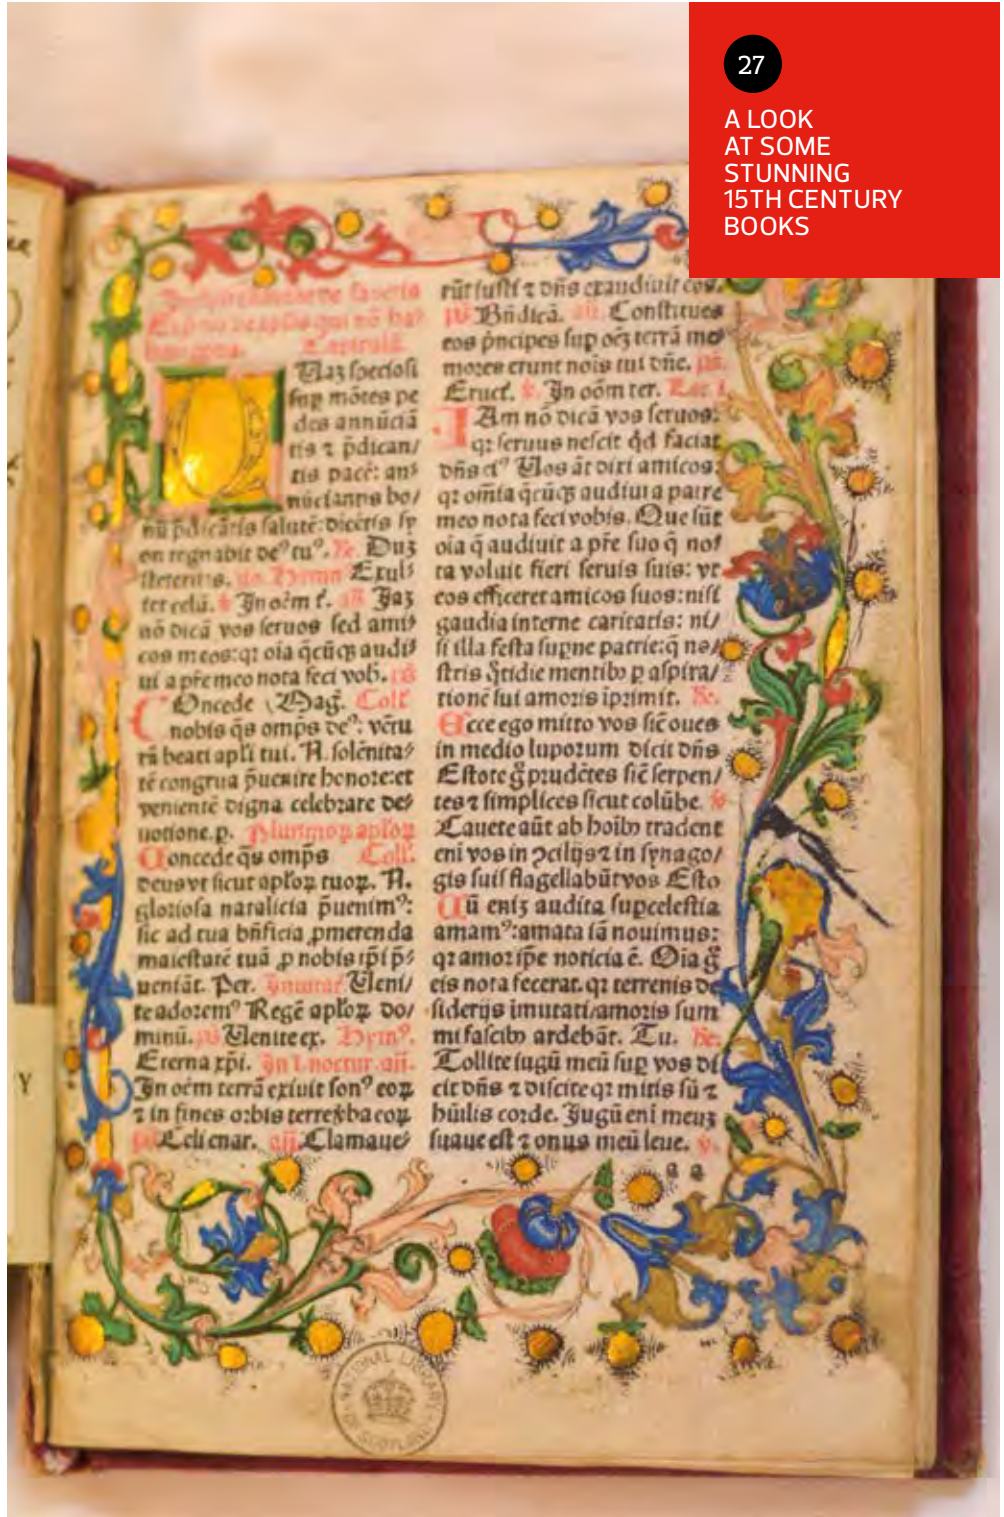 27
A LOOK
AT SOME
STUNNING
15TH CENTURY
BOOKS
des annūciā
tis ⁊ p̄dican/
tis pacē: an⸗
nūciantis bo/
nū p̄dicātis salutē: dicētis sy
on regnabit de⁹ tu⁹.
Exul⸗
nō dicā vos seruos sed ami⸗
cos meos: qꝛ oīa q̄cūqꝫ audi⸗
ui a p̄re meo nota feci vob.
Oncede Mag. Coll'
nobis q̄s omps de⁹: vētu
rā beati apl'i tui. N. solēnita⸗
tē congrua p̄uenire honore: et
venientē digna celebrare de⸗
uotione. p. Plurimoꝝ apl'oꝝ
Concede q̄s omps Coll'.
deus vt sicut apl'oꝝ tuoꝝ. N.
gloriosa natalicia p̄uenim⁹:
sic ad tua bn̄ficia ꝓmerenda
maiestatē tuā ꝓ nobis ip̄i p̄⸗
ueniāt. Per. Veni/
te adorem⁹ Regē apl'oꝝ do/
minū. Venite ex. Hym⁹.
Eterna xp̄i. In .i. noctur. añ.
In oēm terrā exiuit son⁹ eoꝝ
⁊ in fines orbis terre v̄ba eoꝝ
Celi enar. añ. Clamaue⸗
rūt iusti ⁊ dn̄s exaudiuit eos.
Bn̄dicā. añ. Constitues
eos p̄ncipes sup oēꝫ terrā me⸗
mores erunt nois tui dn̄e.
Eruct. In oēm ter.
IAm nō dicā vos seruos:
qꝛ seruus nescit qd faciat
dn̄s ei⁹ Vos āt dixi amicos:
qꝛ omīa q̄cūqꝫ audiui a patre
meo nota feci vobis. Que sūt
oīa q̄ audiuit a p̄re suo q̄ no⸗
ta voluit fieri seruis suis: vt
eos efficeret amicos suos: nisi
gaudia interne caritatis: ni/
si illa festa sup̄ne patrie: q̄ no/
stris q̄tidie mentibꝫ ꝑ aspira/
tionē sui amoris īprimit.
Ecce ego mitto vos sic̄ oues
in medio luporum dicit dn̄s
Estote g̊ prudētes sic̄ serpen/
tes ⁊ simplices sicut colūbe.
Cauete aūt ab hoībꝫ tradent
eni vos in ꝯcilijs ⁊ in synago/
gis suis flagellabūt vos Esto
Cū eniꝫ audita supcelestia
amam⁹: amata iā nouimus:
qꝛ amor ip̄e noticia ē. Oīa g̊
eis nota fecerat. qꝛ terrenis de
siderijs imutati amoris sum
mi facibꝫ ardebāt. Tu.
Tollite iugū meū sup vos di
cit dn̄s ⁊ discite qꝛ mitis sū ⁊
hūilis corde. Iugū eni meuꝫ
suaue est ⁊ onus meū leue. v.
a a
NATIONAL LIBRARY OF SCOTLAND
Y